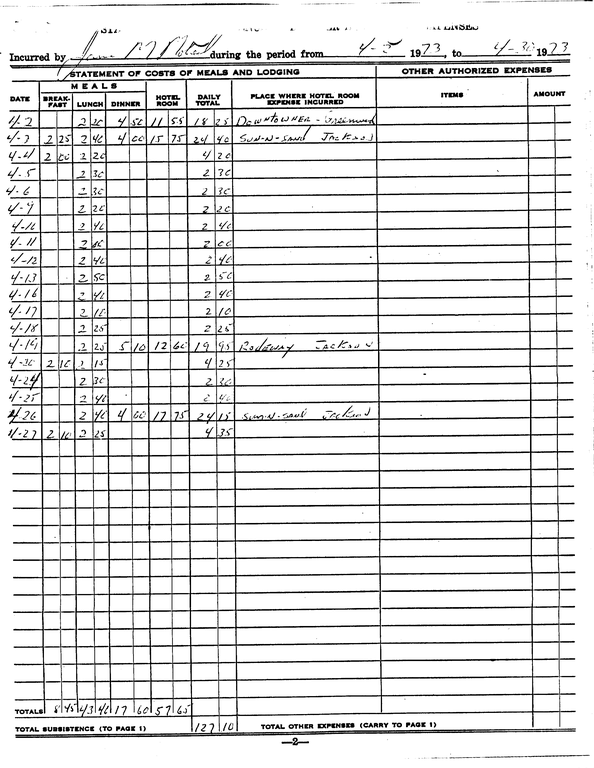 Incurred by during the period from 4-2 1973, to 4-30 1973
STATEMENT OF COSTS OF MEALS AND LODGING OTHER AUTHORIZED EXPENSES
MEALS
DATE BREAK-FAST LUNCH DINNER HOTEL ROOM DAILY TOTAL PLACE WHERE HOTEL ROOM EXPENSE INCURRED ITEMS AMOUNT
4-2 2 20 4 50 11 55 18 25 DOWNTOWNER - Greenwood
4-3 2 25 2 40 4 00 15 75 24 40 SUN-N-SAND JACKSON
4-4 2 00 2 20 4 20
4-5 2 30 2 30
4-6 2 30 2 30
4-9 2 20 2 20
4-10 2 40 2 40
4-11 2 00 2 00
4-12 2 40 2 40
4-13 2 50 2 50
4-16 2 40 2 40
4-17 2 10 2 10
4-18 2 25 2 25
4-19 2 25 5 10 12 60 19 95 RODEWAY JACKSON
2 10 2 15 4 25
4-24 2 30 2 30
4-25 2 40 2 40
4-26 2 40 4 00 17 75 24 15 SUN-N-SAND Jackson
4-27 2 10 2 25 4 35
TOTALS 8 45 43 40 17 60 57 65
TOTAL SUBSISTENCE (TO PAGE 1) 127 10 TOTAL OTHER EXPENSES (CARRY TO PAGE 1)
—2—